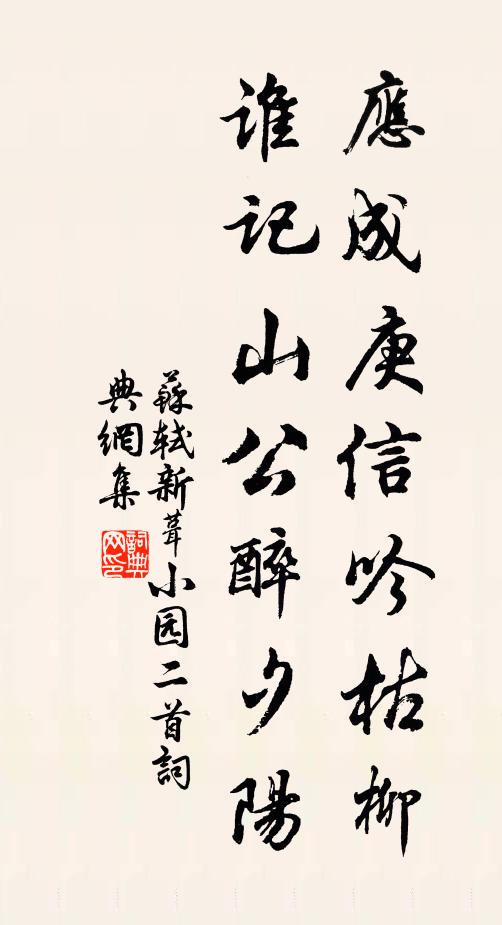 應成庾信吟枯柳
誰记山公醉夕陽
蘇軾新葺小园二首詞
典網集
詞典
网印